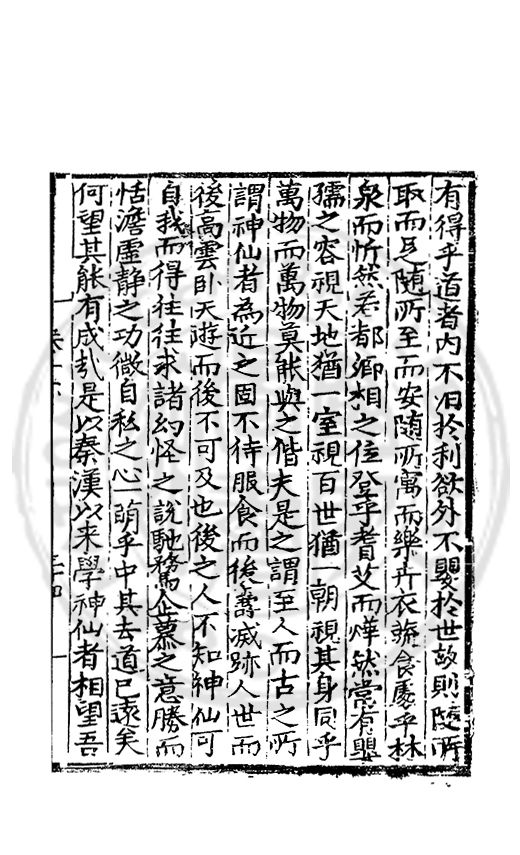 有得乎道者内不汨於利欲外不嬰於世故則隨所
取而足隨所至而安隨所寓而樂卉衣蔬食處乎林
泉而忻然若都卿相之位登乎耆艾而燁然常有嬰
孺之容視天地猶一室視百世猶一朝視其身同乎
萬物而萬物莫能與之偕夫是之謂至人而古之所
謂神仙者為近之固不待服食而後壽滅跡人世而
後高雲卧天遊而後不可及也後之人不知神仙可
自我而得往往求諸幻怪之說馳騖企慕之意勝而
恬澹虛静之功微自私之心一萌乎中其去道已遠矣
何望其能有成㢤是以秦漢以来學神仙者相望吾